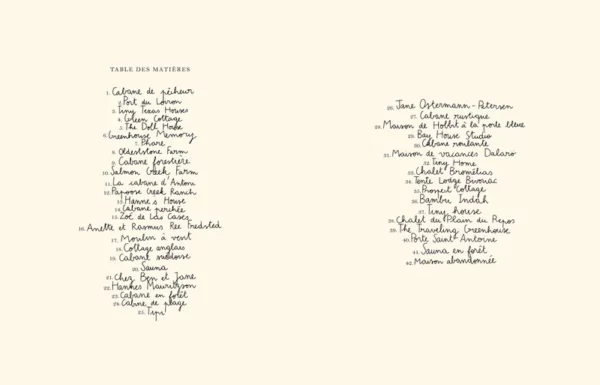 TABLE DES MATIÈRES
1. Cabane de pêcheur
2. Port du Loiron
3. Tiny Texas Houses
4. Green Cottage
5. The Doll House
6. Greenhouse Memory
7. Phare
8. Oldenstone Farm
9. Cabane forestière
10. Salmon Creek Farm
11. La cabane d'Antoni
12. Papoose Creek Ranch
13. Hanne's House
14. Cabane perchée
15. Zoé de Las Cases
16. Anette et Rasmus Ree Fredsted
17. Moulin à vent
18. Cottage anglais
19. Cabane suédoise
20. Sauna
21. Chez Ben et Jane
22. Hannes Mauritzson
23. Cabane en forêt
24. Cabane de plage
25. Tipi
26. Jane Ostermann-Petersen
27. Cabane rustique
28. Maison de Hobbit à la porte bleue
29. Bay House Studio
30. Cabane roulante
31. Maison de vacances Dalarö
32. Tiny Home
33. Chalet Bromélias
34. Tente Lodge Bivouac
35. Prospect Cottage
36. Bambu Indah
37. Tiny house
38. Chalet du Plain du Repos
39. The Traveling Greenhouse
40. Porte Saint Antoine
41. Sauna en forêt
42. Maison abandonnée